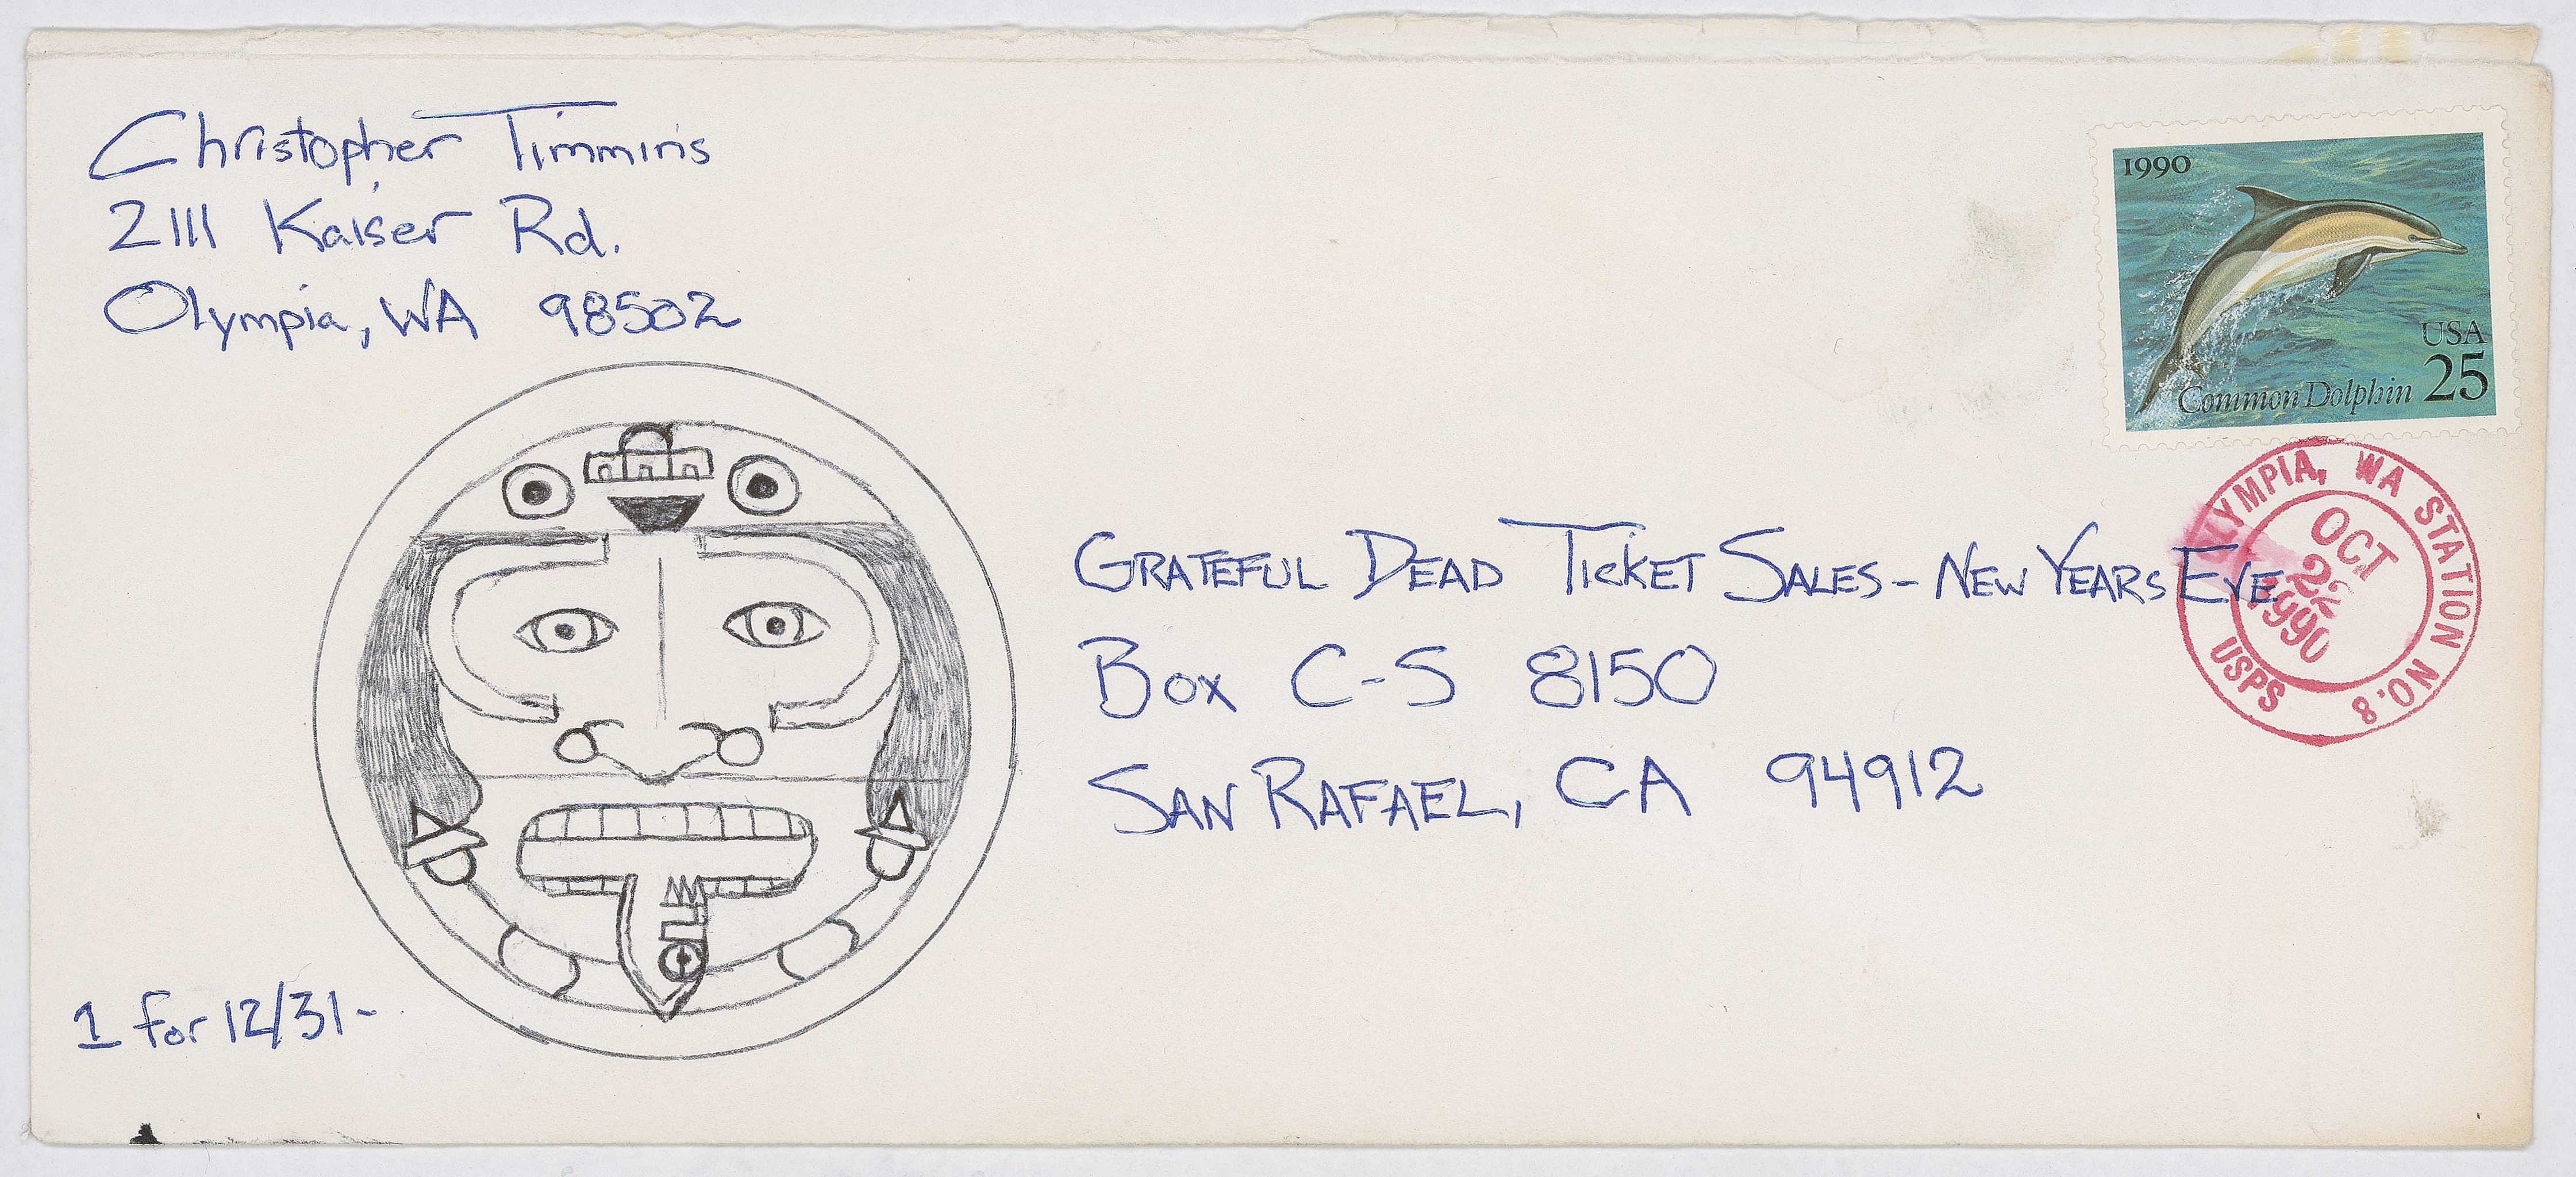 Christopher Timmins
2111 Kaiser Rd.
Olympia, WA 98502
1990
USA
Common Dolphin 25
OLYMPIA, WA STATION NO. 8
OCT
22
1990
USPS
GRATEFUL DEAD TICKET SALES - NEW YEARS EVE
Box C-S 8150
SAN RAFAEL, CA 94912
1 for 12/31-